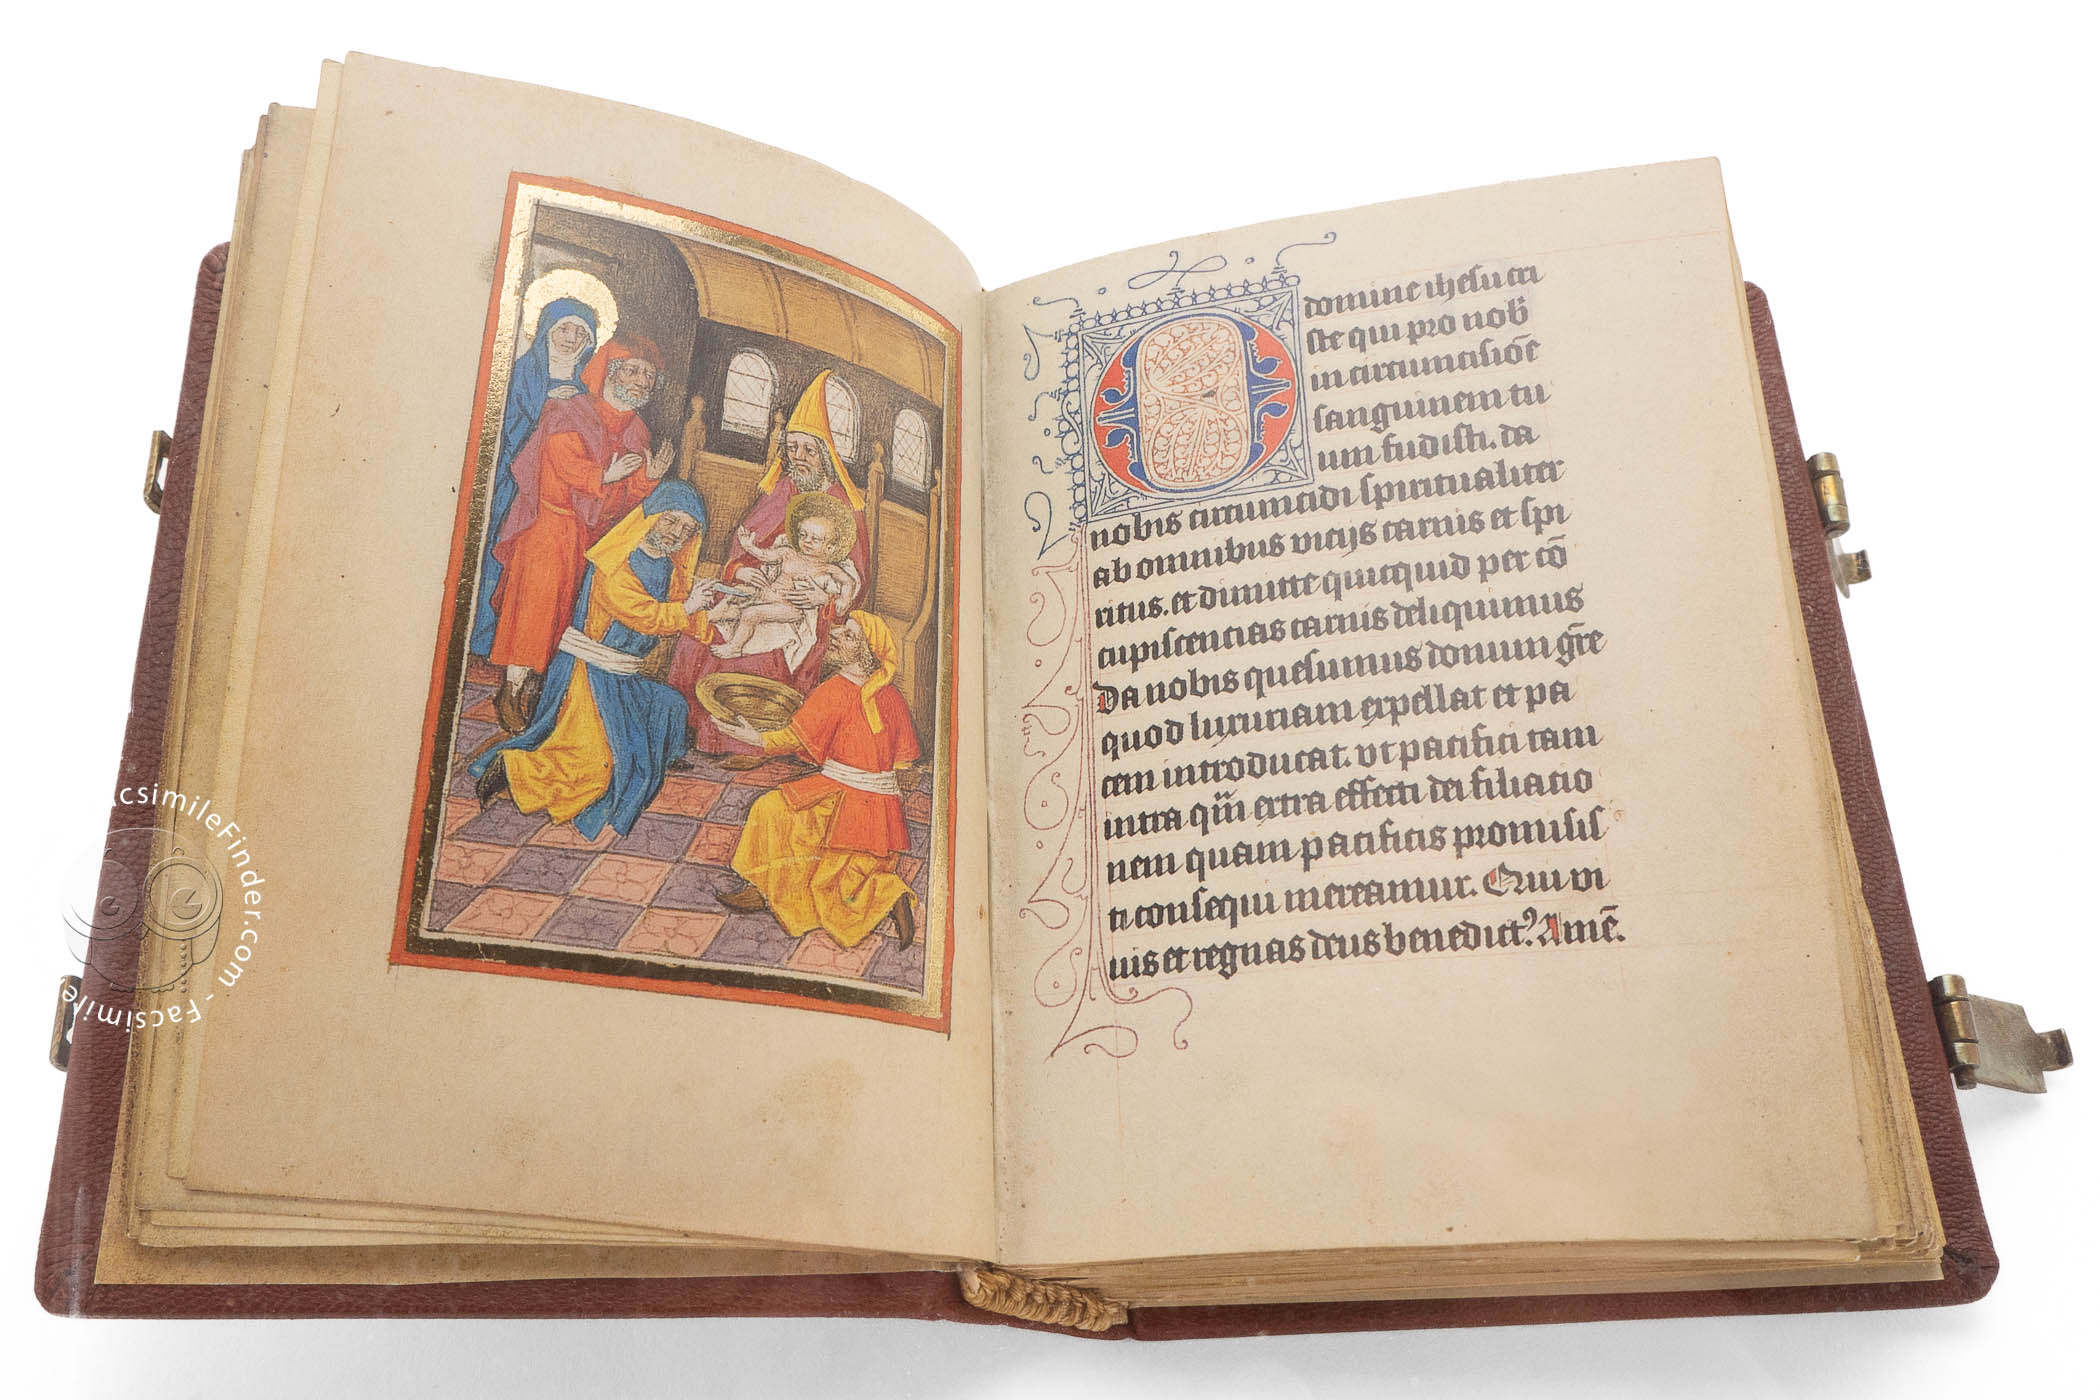 O domine ihesu cri
ste qui pro nob
in circumcisiōe
sanguinem tu
um fudisti. da
nobis circumcidi spiritualiter
ab omnibus vicijs carnis et spi
ritus. et dimitte quicquid per cō
cupiscencias carnis deliquimus
Da nobis quesumus donum gr̄e
quod luxuriam expellat et pa
cem introducat. vt pacifici tam
intra qm̄ extra effecti dei filiacio
nem quam pacificis promisis
ti consequi mereamur. Qui vi
uis et regnas deus benedict9 Amē.
acsimileFinder.com - Facsimile